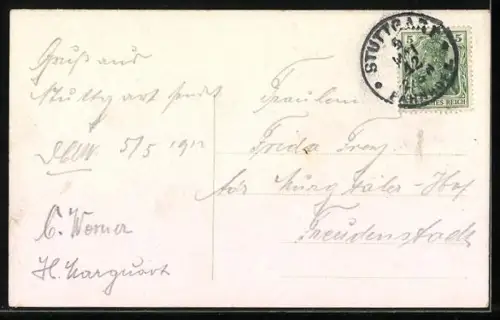 Gruß aus
Stuttgart sendet
5/5 1912
C. Werner
H. Marquart
STUTTGART
5
5
REICH
Fräulein
Frida Frey
Adr Murgtäler-Hof
Freudenstadt